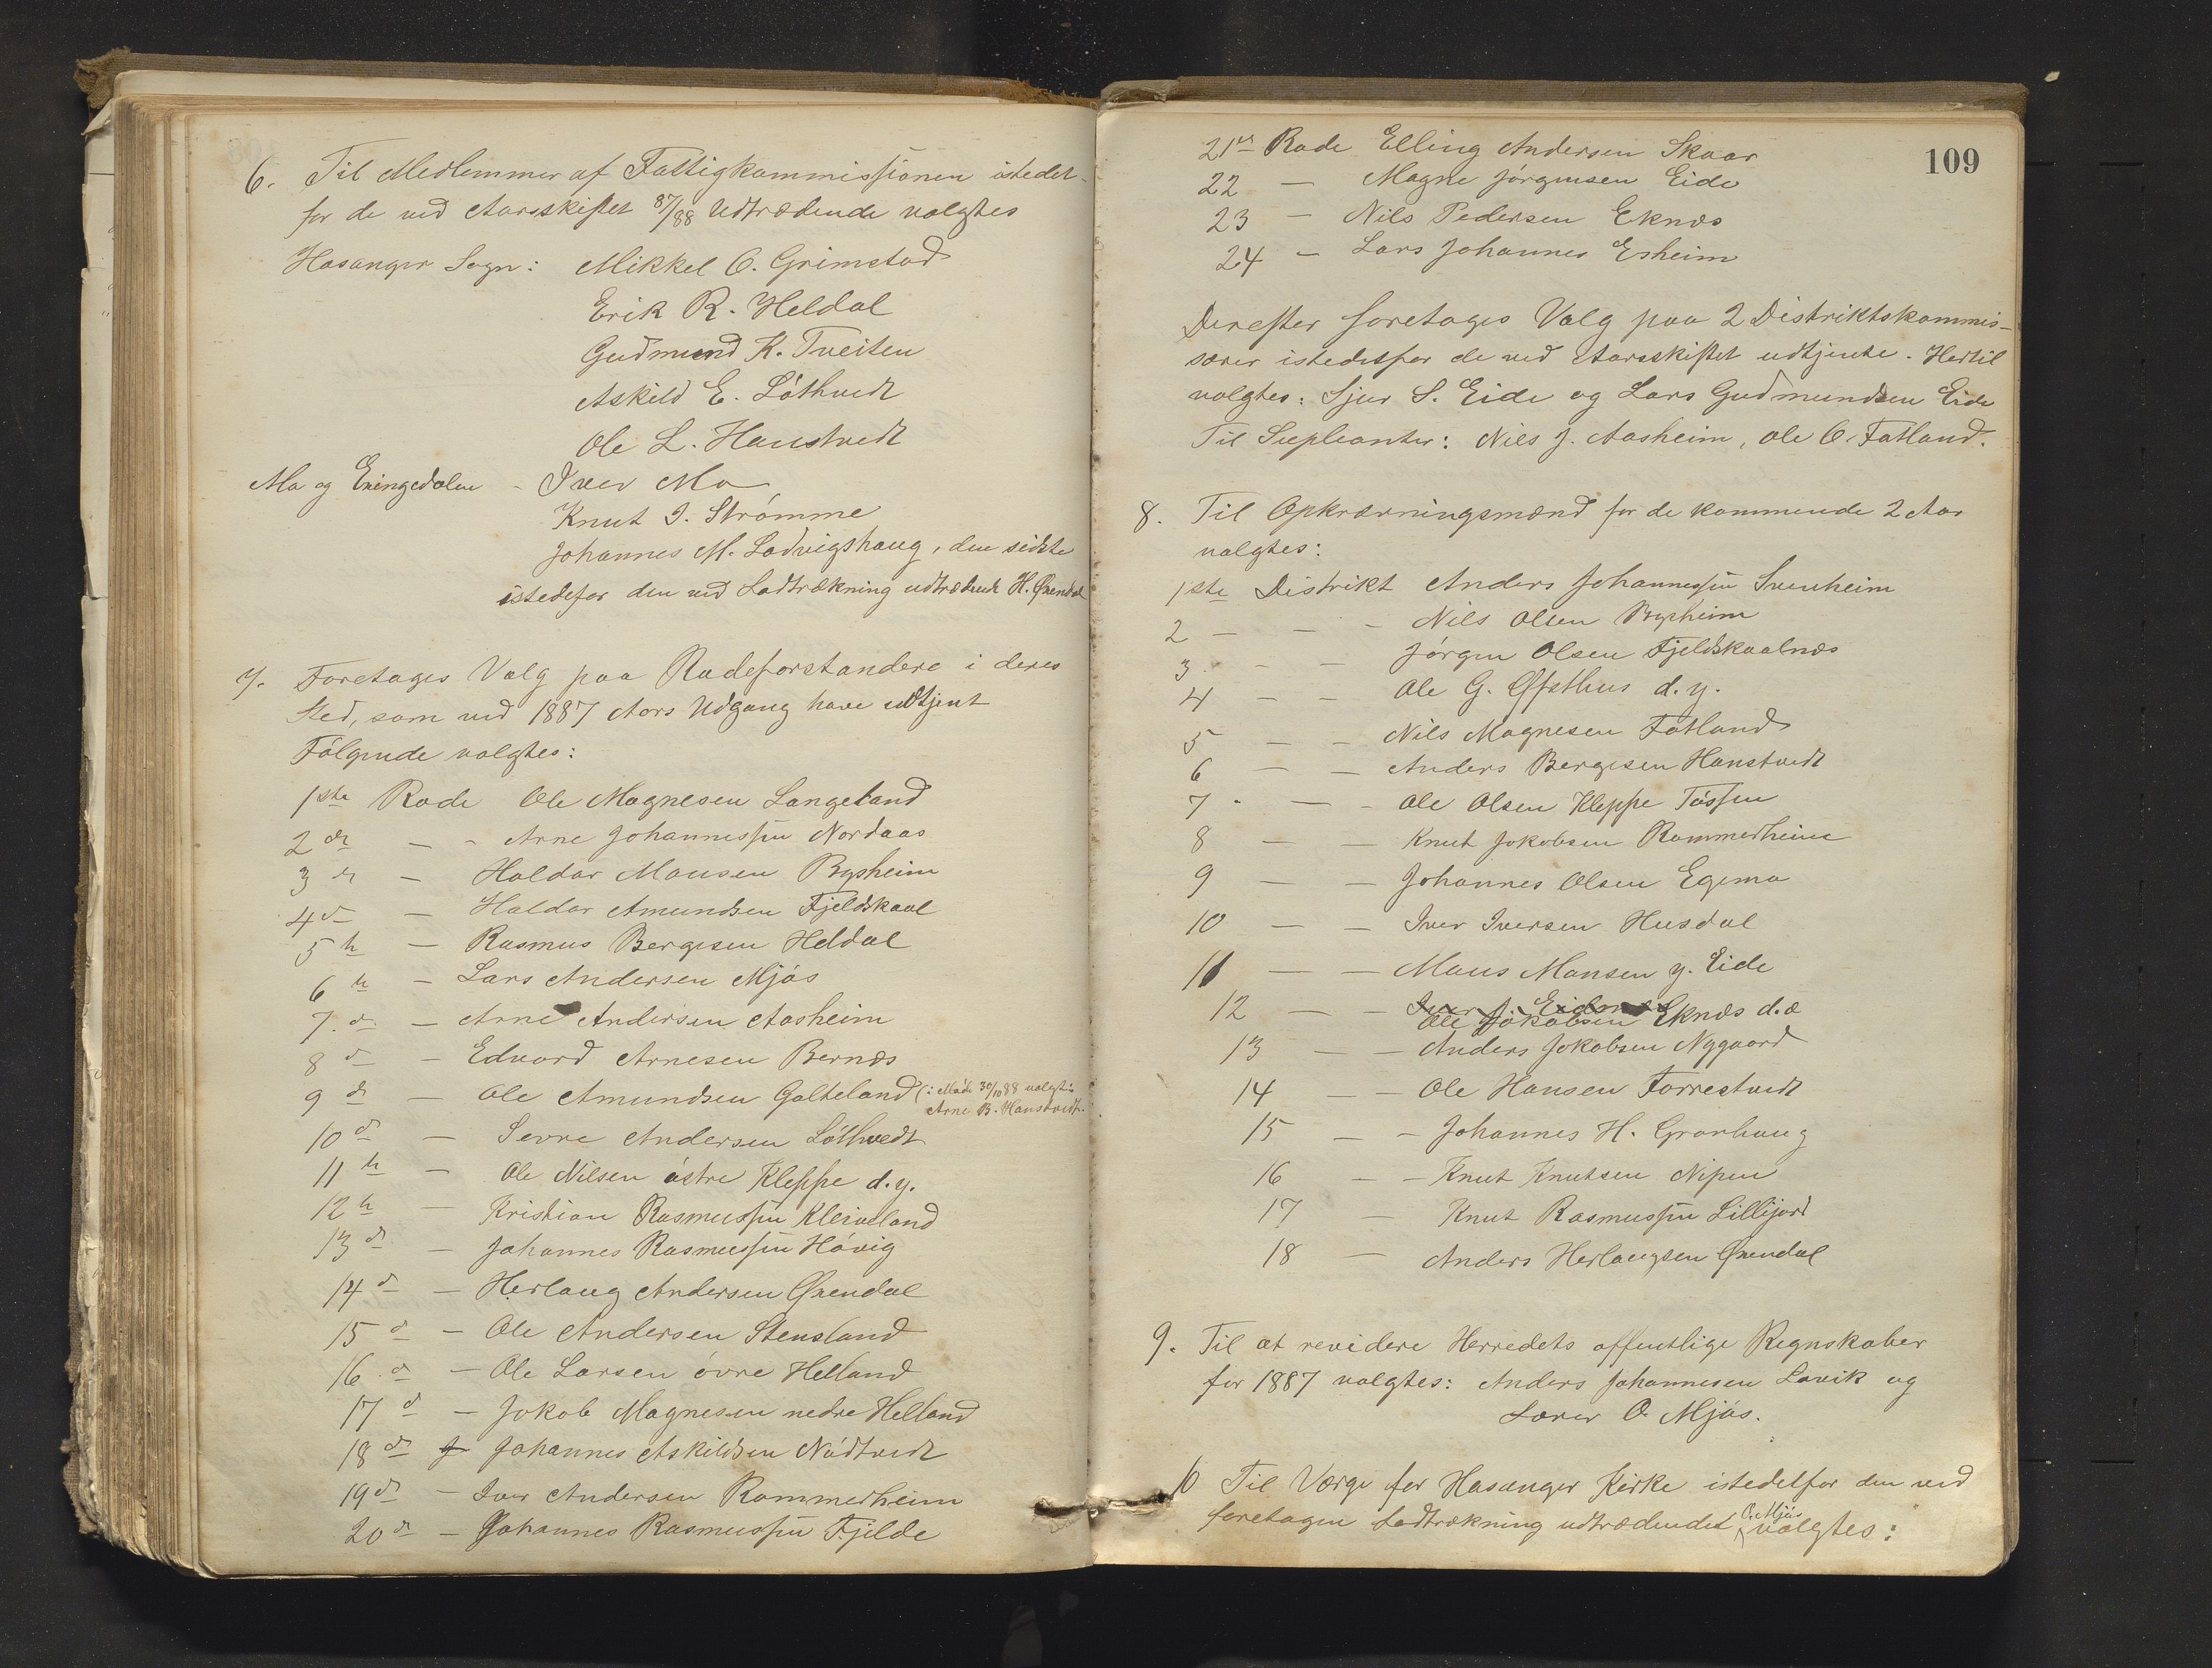 6. Til Medlemmer af Fattigkommissionen istedet-
for de ved Aarsskiftet 87/88 Udtrædende valgtes
Hosanger Sogn: Mikkel O. Grimstad
Erik R. Heldal
Gudmund K. Tveiten
Askild E. Lóthvedt
Ole L. Hanstvedt
Mo og Exingedalen - Iver Mo
Knut I. Strómme
Johannes M. Lodvigshaug, den sidste
istedefor den ved Lodtrækning udtrædende H. Øxendal
7. Foretages Valg paa Rodeforstandere i deres
Sted, som ved 1887 Aars Udgang have udtjent
Fólgende valgtes:
1ste Rode Ole Magnesen Langeland
2den — - Arne Johannessen Nordaas
3die — Haldor Monsen Bysheim
4de — Haldor Amundsen Fjeldskaal
5te — Rasmus Bergesen Heldal
6te — Lars Andersen Mjós
7de — Arne Andersen Aasheim
8de — Edvard Arnesen Bernæs
9de — Ole Amundsen Galteland (: Móde 30/10 88 valgt:
Arne B. Hanstvedt.
10de — Sevre Andersen Lóthvedt
11te — Ole Nilsen óstre Kleppe d.y.
12te — Kristian Rasmussen Kleiveland
13de — Johannes Rasmussen Hóvig
14de — Herlaug Andersen Øxendal
15de — Ole Andersen Stensland
16de — Ole Larsen óvre Helland
17de — Jokob Magnesen nedre Helland
18de J Johannes Askildsen Nódtvedt
19de — Iver Andersen Rommerheim
20de — Johannes Rasmussen Fjelde
109
21de Rode Elling Andersen Skaar
22 — Magne Jórgensen Eide
23 — Nils Pedersen Eknæs
24 — Lars Johannes Esheim
Derefter foretages Valg paa 2 Distriktskommis-
særer istedetfor de ved Aarsskiftet udtjente. Hertil
valgtes: Sjur S. Eide og Lars Gudmundsen Eide
Til Supleanter: Nils J. Aasheim, Ole O. Fatland.
8. Til Opkrævningsmænd for de kommende 2 Aar
valgtes:
1ste Distrikt Anders Johannessen Svenheim
2 - - - Nils Olsen Bysheim
3 - - Jórgen Olsen Fjeldskaalnæs
4 - - Ole G. Øfsthus d. y.
5 — — Nils Magnesen Fatland
6 — — Anders Bergesen Hanstvedt
7 - — - Ole Olsen Kleppe Tóssen
8 — — Knut Jokobsen Rommerheim
9 — — Johannes Olsen Egemo
10 — — Iver Iversen Husdal
11 — — Mons Monsen y. Eide
12 — — Iver J. Eidsnes
Ole Jokobsen Eknæs d.æ
13 — — Anders Jokobsen Nygaard
14 — — Ole Hansen Forrestvedt
15 — — Johannes H. Granhaug
16 — — Knut Knutsen Nipen
17 — Knut Rasmussen Lillejord
18 — Anders Herlaugsen Øxendal
9. Til at revidere Herredets offentlige Regnskaber
for 1887 valgtes: Anders Johannesen Lavik og
Lærer O. Mjós.
10 Til Værge for Hosanger Kirke istedetfor den ved
O. Mjós
foretagen Lodtrækning udtrædendet valgtes: